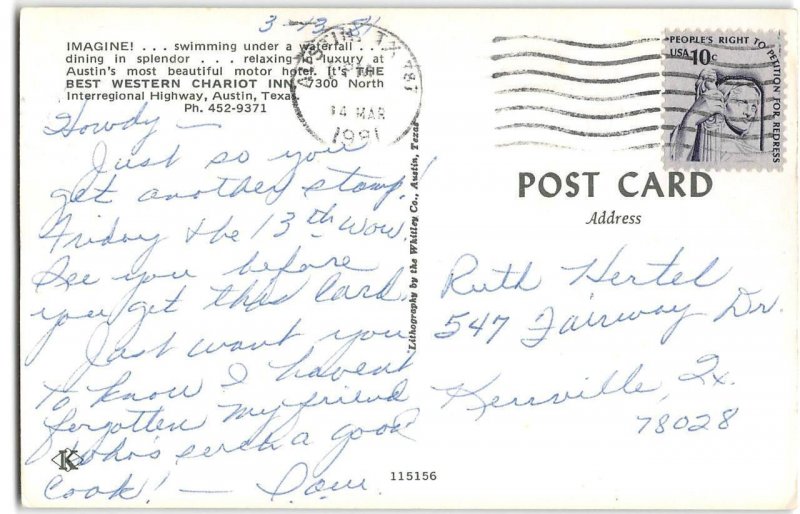 3-13-81
IMAGINE! . . . swimming under a waterfall . . .
dining in splendor . . . relaxing in luxury at
Austin's most beautiful motor hotel. It's THE
BEST WESTERN CHARIOT INN, 7300 North
Interregional Highway, Austin, Texas
Ph. 452-9371
Howdy —
Just so you
get another stamp!
Friday the 13th wow.
See you before
you get this Card.
Just want you
to know I havent
forgotten my friend
who's even a good
Cook! —
K
Lithography by the Whitley Co., Austin, Texas
115156
AUSTIN, TX
14 MAR
1981
PEOPLE'S RIGHT TO PETITION FOR REDRESS
USA 10c
POST CARD
Address
Ruth Hertel
547 Fairway Dr.
Kerrville, Tx.
78028